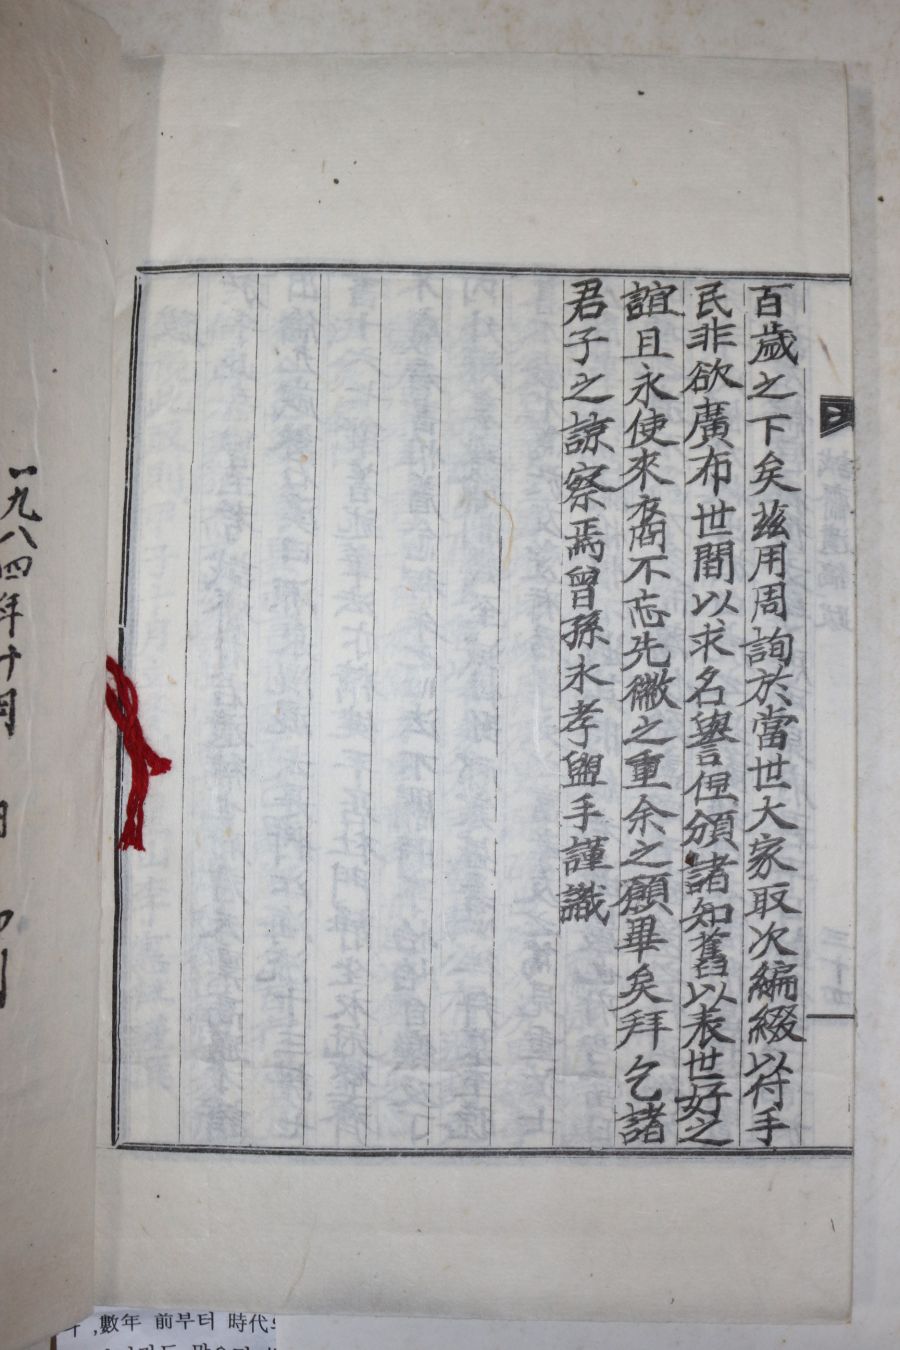 百歲之下矣玆用周詢於當世大家取次編綴以付手
民非欲廣布世間以求名譽但頒諸知舊以表世好之
誼且永使來裔不忘先徽之重余之願畢矣拜乞諸
君子之諒察焉曾孫永孝盥手謹識
一九八四年十月
數年 前부터 時代